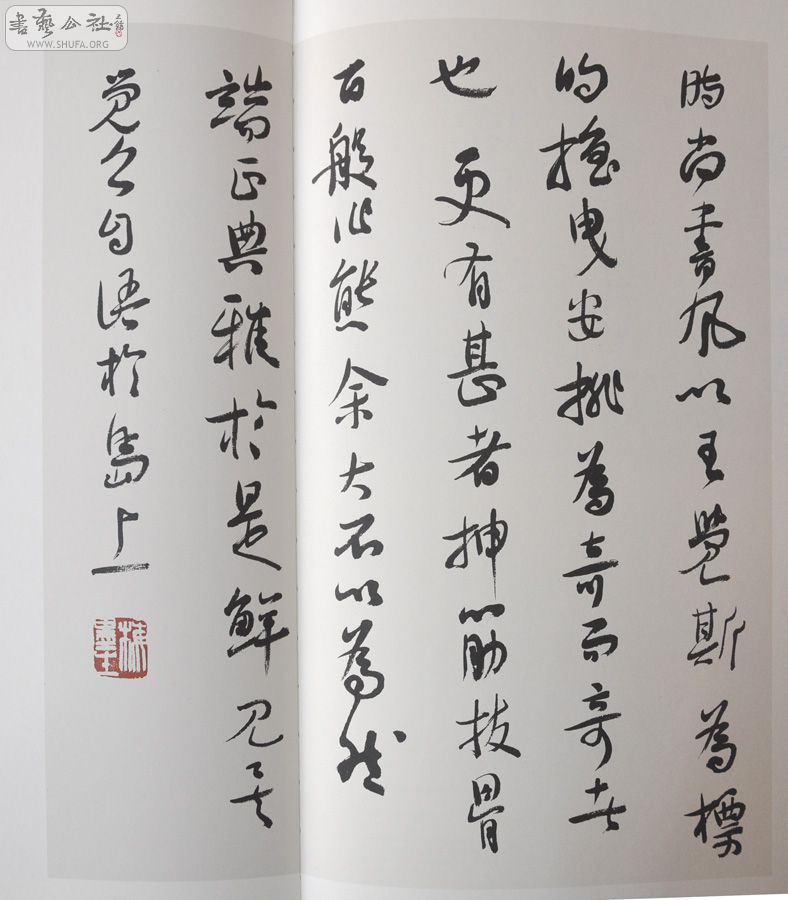 書藝公社
WWW.SHUFA.ORG
時尚書風以王覺斯為標
的搖曳安排為奇而奇者
也更有甚者抻筋拔骨
百般作態余大不以為然
端正典雅於是鮮見矣
觉公自語於島上
梅墨生